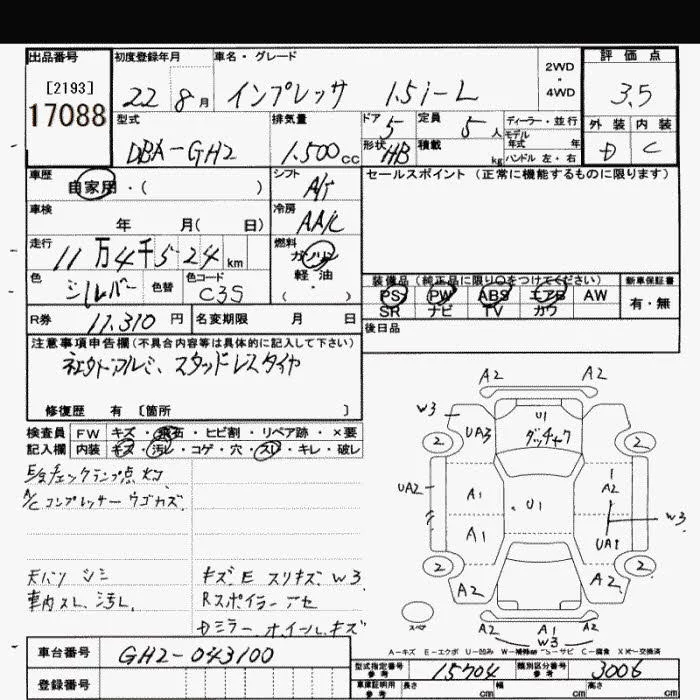 出品番号 初度登録年月 車名・グレード 2WD・4WD 評価点
[2193] 22 8月 インプレッサ 1.5i-L 3.5
17088
型式 排気量 ドア 定員 ディーラー・並行 外装 内装
DBA-GH2 1,500cc 5 5人 モデル年式 年 D C
形状 HB 積載 kg ハンドル 左・右
車歴 シフト セールスポイント(正常に機能するものに限ります)
自家用・( ) A/T
車検 冷房
年 月( 日) AA/C
走行 燃料
11万4千524km ガソリン
軽油
・( )
色 色替 色コード 装備品(純正品に限り○をつけてください) 新車保証書
シルバー C3S PS PW ABS エアB AW 有・無
SR ナビ TV カワ
R券 11,310円 名変期限 月 日 後日品
注意事項申告欄(不具合内容等は具体的に記入して下さい)
社外アルミ、スタッドレスタイヤ
修復歴 有 [箇所 ]
検査員 FW キズ・飛石・ヒビ割・リペア跡・×要
記入欄 内装 キズ・汚レ・コゲ・穴・スレ・キレ・破レ
A/Cコンプレッサーウゴカズ
天バリ シミ キズ E スリキズ W3
車内スレ、汚レ Rスポイラーアセ
Dミラー ホイールキズ
A2 A2
W3 U1
2 UA3 グッチャク 2
UA2 A1 U1 A2
W3
A1 UA1
2 2
A2 A2
スペア A2 A1 A2
W3
A=キズ E=エクボ U=凹み W=補修跡 S=サビ C=腐食 X=交換済
車台番号 GH2-043100
登録番号
型式指定番号 参考 15704 類別区分番号 参考 3006
車庫証明用 参考 長さ cm 幅 cm 高さ cm